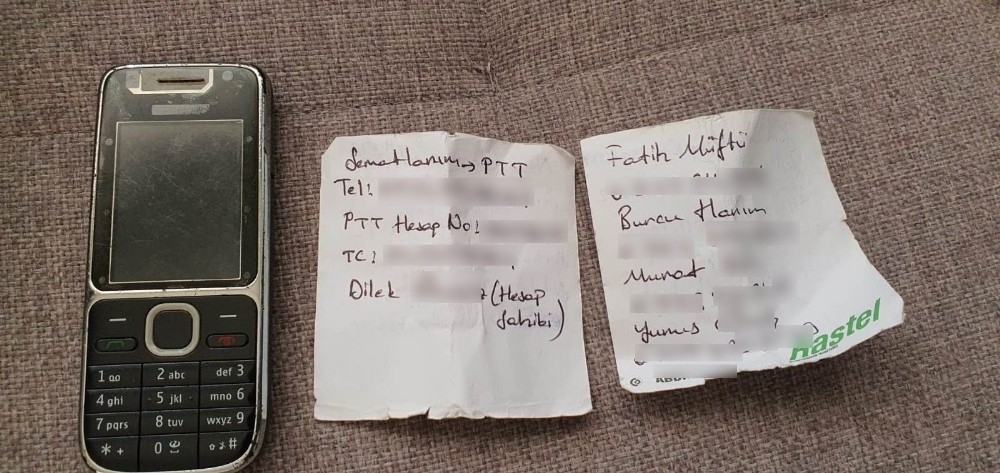 1
2 abc
def 3
4 ghi
5 jkl
mno 6
7 pqrs
8 tuv
wxyz 9
* +
0
#
Sema Hanım → PTT
Tel:
PTT Hesap No:
TC:
Dilek (Hesap
Sahibi)
Fatih Müftü
Burcu Hanım
Murat
Yunus (
hastel